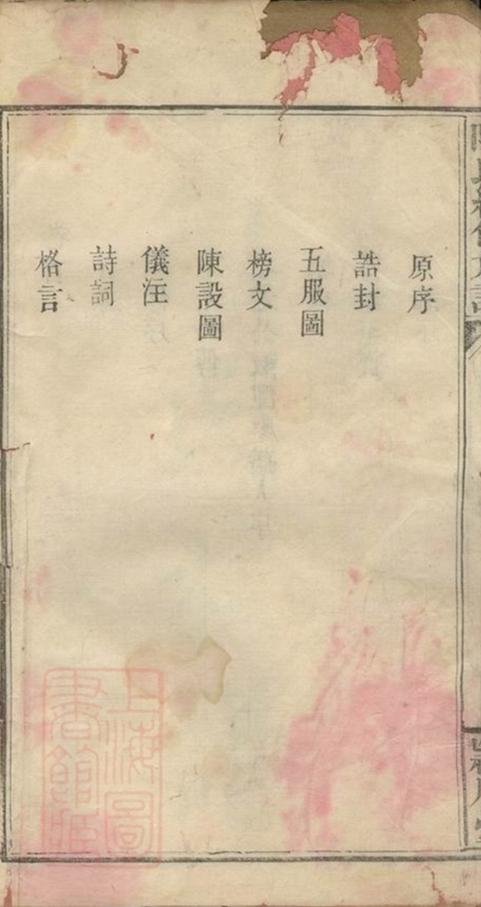 原序
誥封
五服圖
榜文
陳設圖
儀注
詩詞
格言
上海圖
書館藏